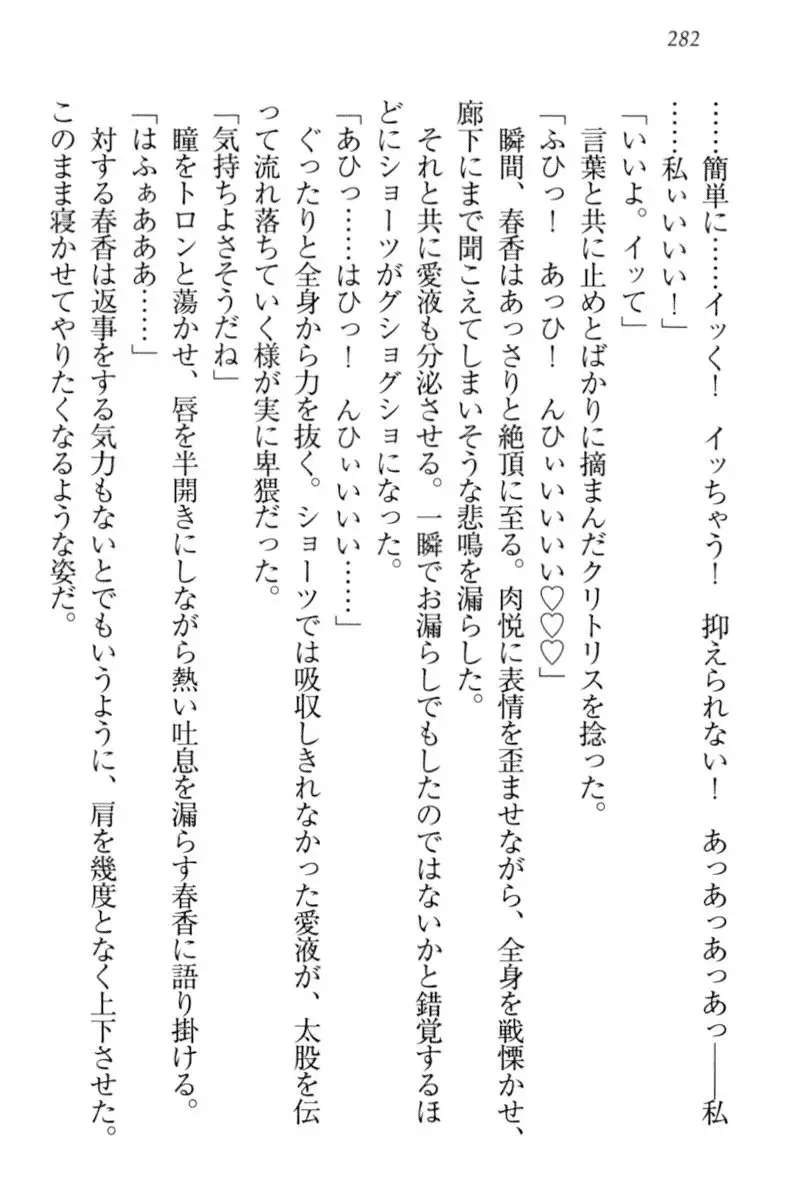 282
……簡単に……イッく！　イッちゃう！　抑えられない！　あっあっあっあっ――私
……私ぃいいい！」
「いいよ。イッて」
　言葉と共に止めとばかりに摘まんだクリトリスを捻った。
「ふひっ！　あっひ！　んひぃいいいいい♡♡♡」
　瞬間、春香はあっさりと絶頂に至る。肉悦に表情を歪ませながら、全身を戦慄かせ、
廊下にまで聞こえてしまいそうな悲鳴を漏らした。
　それと共に愛液も分泌させる。一瞬でお漏らしでもしたのではないかと錯覚するほ
どにショーツがグショグショになった。
「あひっ……はひっ！　んひぃいいい……」
　ぐったりと全身から力を抜く。ショーツでは吸収しきれなかった愛液が、太股を伝
って流れ落ちていく様が実に卑猥だった。
「気持ちよさそうだね」
　瞳をトロンと蕩かせ、唇を半開きにしながら熱い吐息を漏らす春香に語り掛ける。
「はふぁあああ……」
　対する春香は返事をする気力もないとでもいうように、肩を幾度となく上下させた。
このまま寝かせてやりたくなるような姿だ。